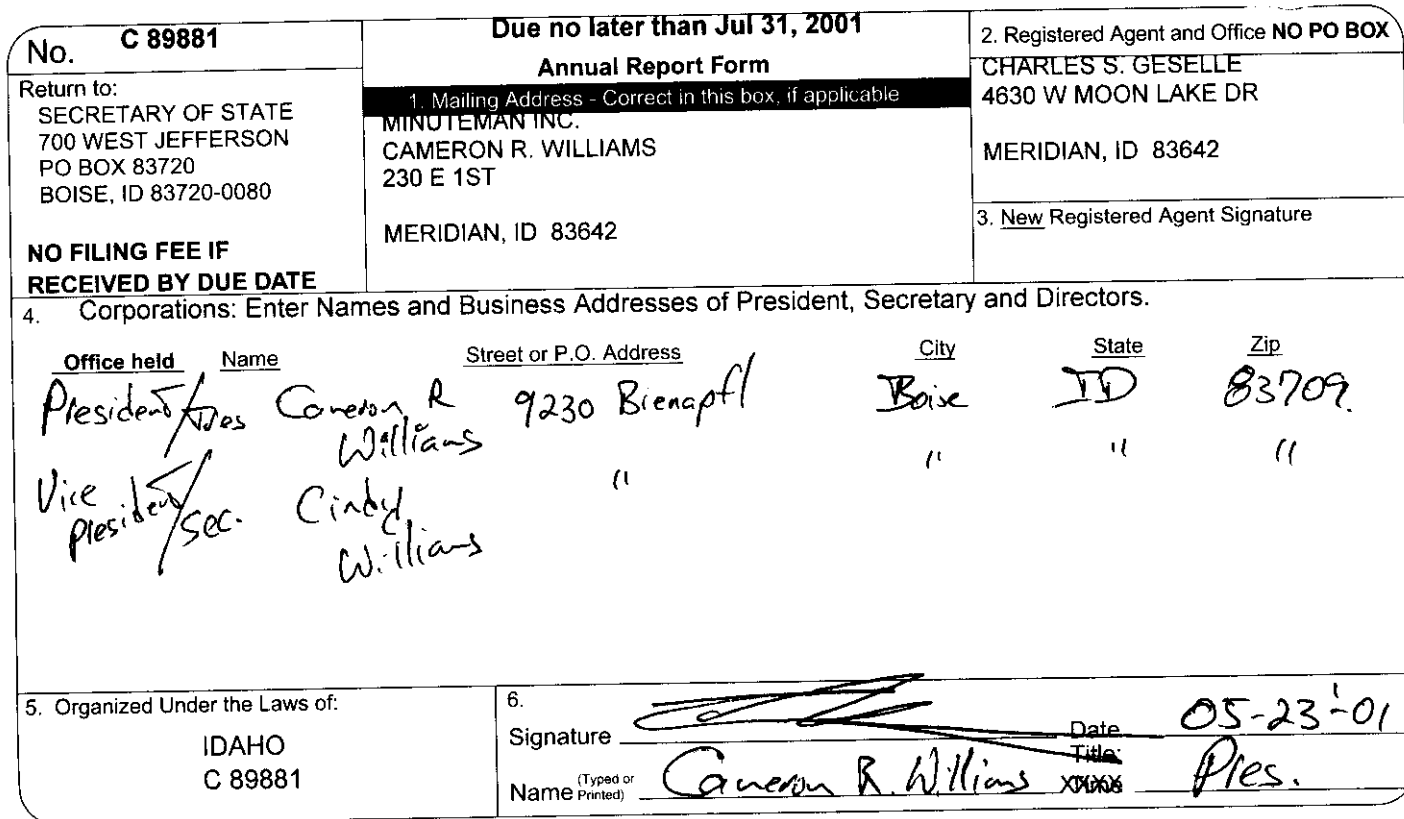 No. C 89881
Return to:
SECRETARY OF STATE
700 WEST JEFFERSON
PO BOX 83720
BOISE, ID 83720-0080
NO FILING FEE IF
RECEIVED BY DUE DATE
Due no later than Jul 31, 2001
Annual Report Form
1. Mailing Address - Correct in this box, if applicable
MINUTEMAN INC.
CAMERON R. WILLIAMS
230 E 1ST
MERIDIAN, ID 83642
2. Registered Agent and Office NO PO BOX
CHARLES S. GESELLE
4630 W MOON LAKE DR
MERIDIAN, ID 83642
3. New Registered Agent Signature
4. Corporations: Enter Names and Business Addresses of President, Secretary and Directors.
Office held Name Street or P.O. Address City State Zip
President/Tres Cameron R 9230 Bienapfl Boise ID 83709.
Williams
Vice " " " "
President/Sec. Cindy
Williams
5. Organized Under the Laws of:
IDAHO
C 89881
6.
Signature Date 05-23-01
Title:
Name (Typed or Printed) Cameron R. Williams Pres.